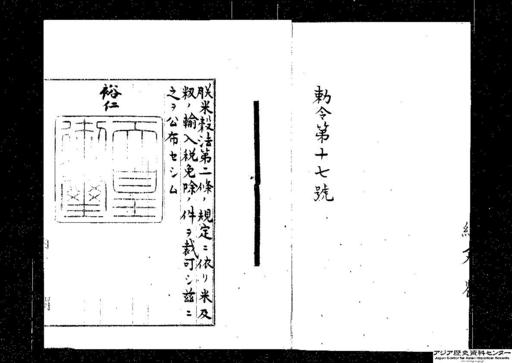 勅令第十七號
朕米穀法第二條ノ規定ニ依リ米及
籾ノ輸入税免除ノ件ヲ裁可シ茲ニ
之ヲ公布セシム
裕仁
天皇御璽
アジア歴史資料センター
Japan Center for Asian Historical Records